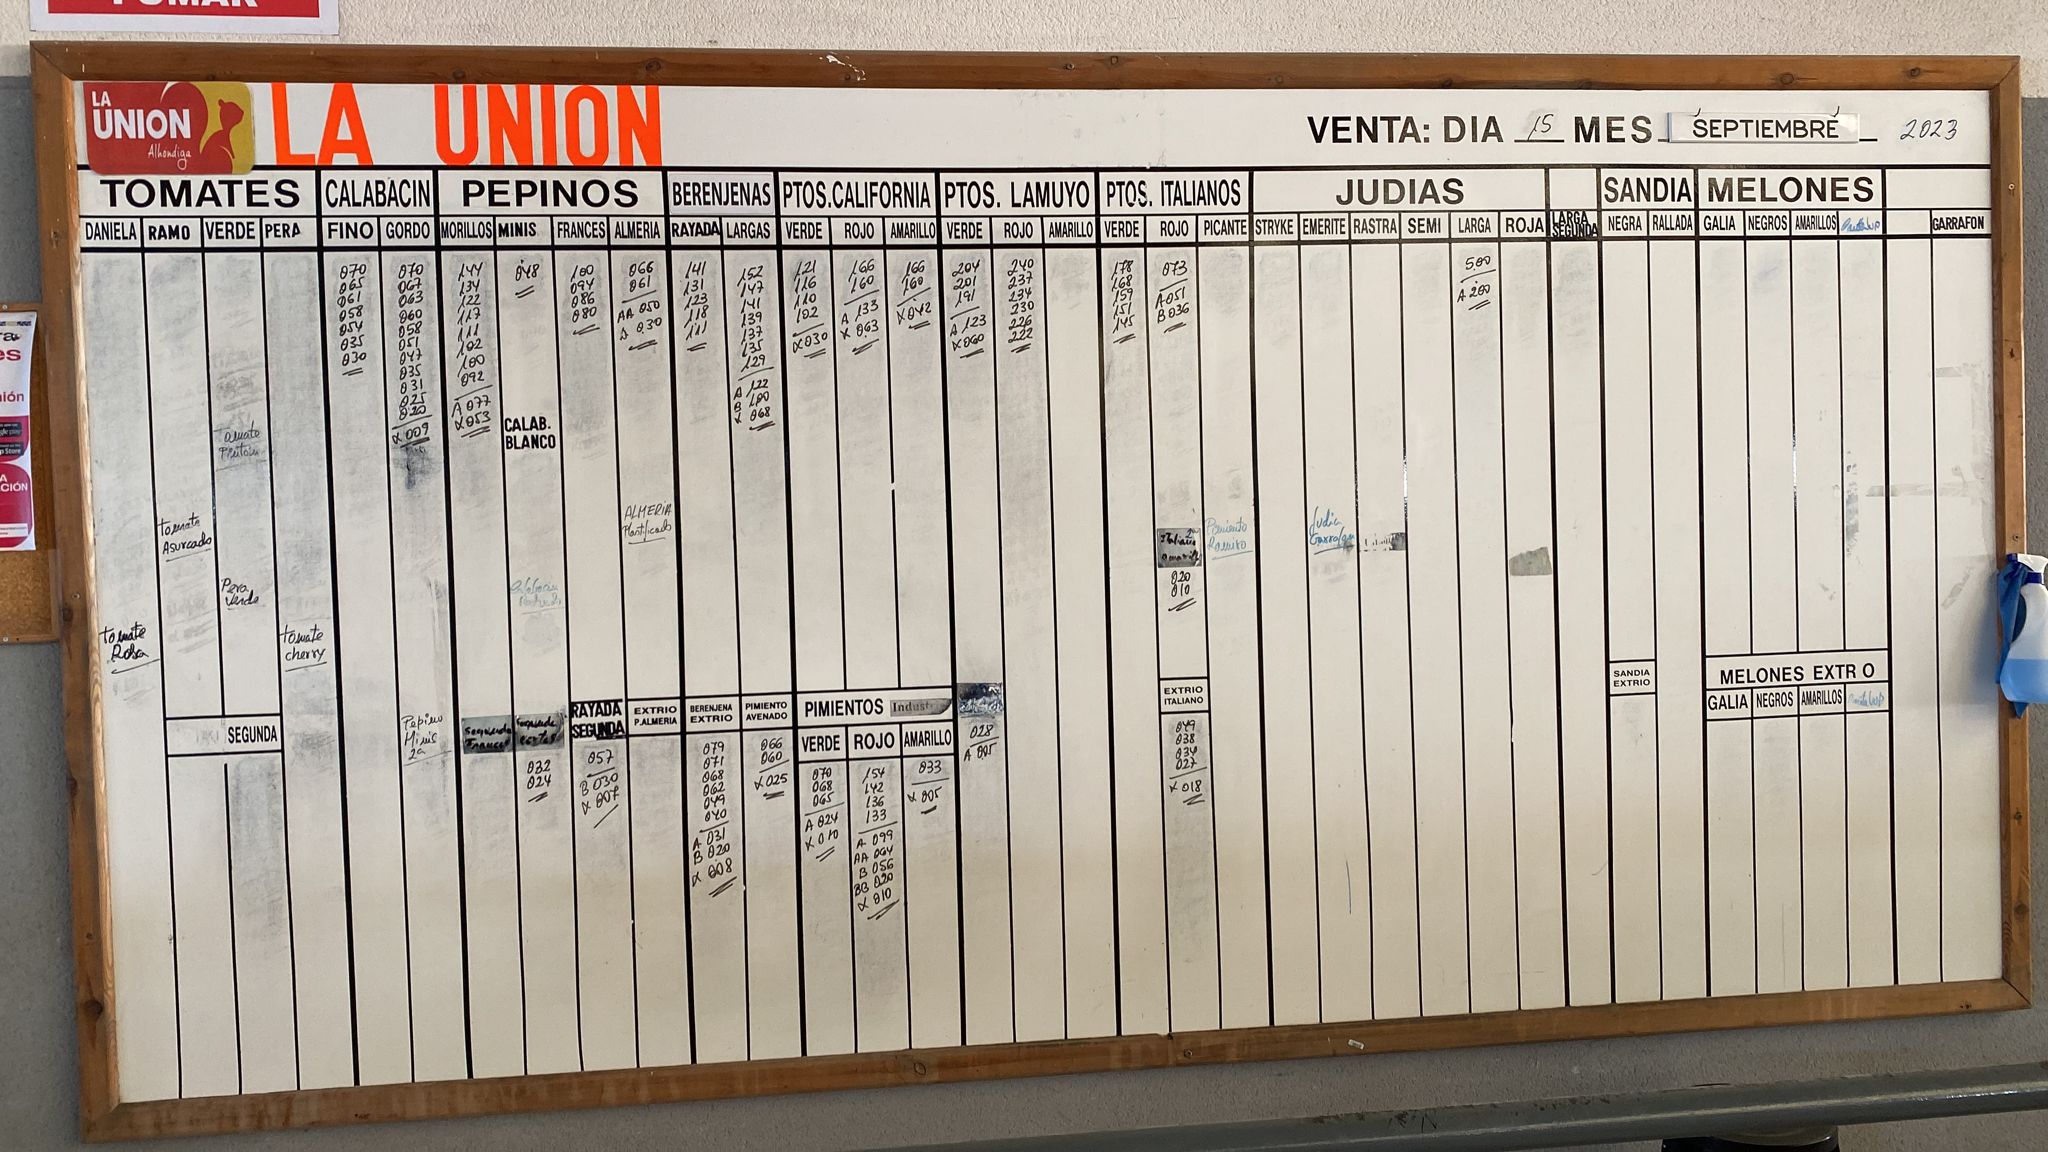 FUMAR
LA
UNION
Alhóndiga
LA UNION
VENTA: DIA 15 MES SEPTIEMBRE 2023
TOMATES CALABACIN PEPINOS BERENJENAS PTOS.CALIFORNIA PTOS. LAMUYO PTOS. ITALIANOS JUDIAS SANDIA MELONES
DANIELA RAMO VERDE PERA FINO GORDO MORILLOS MINIS. FRANCES ALMERIA RAYADA LARGAS VERDE ROJO AMARILLO VERDE ROJO AMARILLO VERDE ROJO PICANTE STRYKE EMERITE RASTRA SEMI LARGA ROJA LARGA SEGUNDA NEGRA RALLADA GALIA NEGROS AMARILLOS GARRAFON
070
065
061
058
054
035
030
070
067
063
060
058
051
047
035
031
025
020
X 009
144
134
122
117
111
102
100
092
A 077
X 053
048
100
094
086
080
066
061
AA 050
A 030
141
131
123
118
111
152
147
141
139
137
135
129
A 122
B 100
X 068
121
116
110
102
X 030
166
160
A 133
X 063
166
160
X 042
204
201
191
A 123
X 060
240
237
234
230
226
222
178
168
159
151
145
073
A 051
B 036
5,00
A 200
CALAB.
BLANCO
Tomate
Pintón
ALMERIA
Plastificado
Tomate
Asurcado
Pera
Verde
Tomate
Rosa
Tomate
cherry
Italiano
020
010
Pimiento
Ramiro
Judia
Garrafon
SEGUNDA
Pepino
Minis
2a
Segunda
Frances
032
024
RAYADA
SEGUNDA
057
B 030
X 007
EXTRIO
P.ALMERIA
BERENJENA
EXTRIO
079
071
068
062
049
040
A 031
B 020
X 008
PIMIENTO
AVENADO
066
060
X 025
PIMIENTOS
VERDE ROJO AMARILLO
070
068
065
A 024
X 010
154
142
136
133
A 099
AA 064
B 056
BB 020
X 010
033
X 005
028
A 005
EXTRIO
ITALIANO
049
038
034
027
X 018
SANDIA
EXTRIO
MELONES EXTR O
GALIA NEGROS AMARILLOS